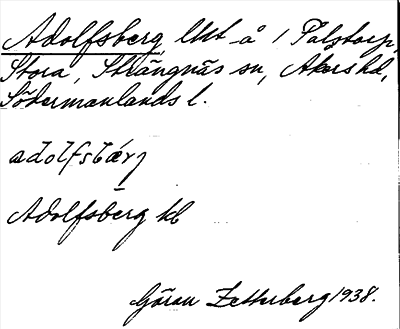 Adolfsberg, lht å 1 Palstorp,
Stora, Strängnäs sn, Åkers hd,
Södermanlands l.
adolfsbærj
Adolfsberg kb
Göran Zetterberg 1938.